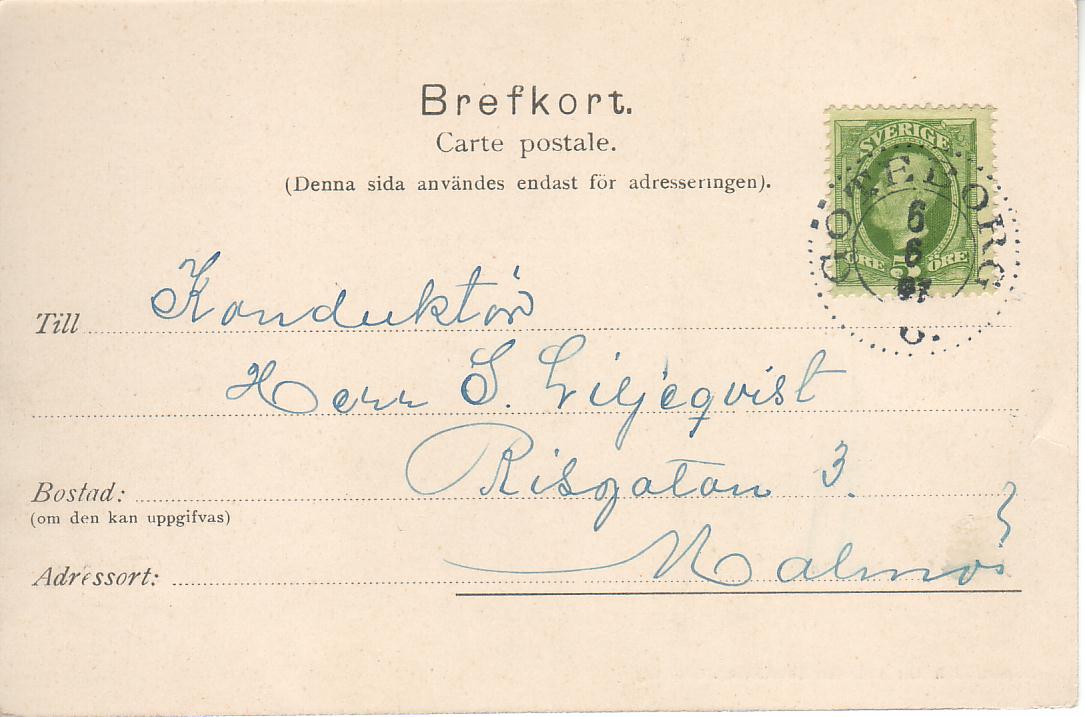 Brefkort.
Carte postale.
(Denna sida användes endast för adresseringen).
SVERIGE
5
ÖRE ÖRE
GÖTEBORG
6
9
97
Till Konduktör
Herr S. Liljeqvist
Bostad: Risgatan 3.
(om den kan uppgifvas)
Adressort: Malmö